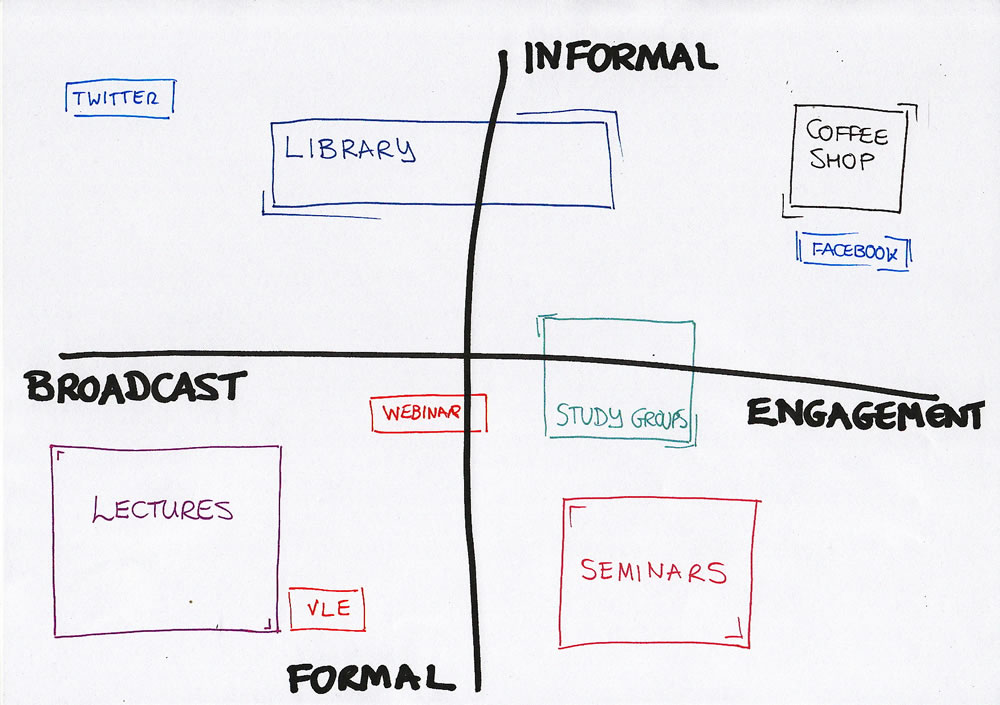 INFORMAL
TWITTER
LIBRARY
COFFEE
SHOP
FACEBOOK
BROADCAST
ENGAGEMENT
WEBINAR
STUDY GROUPS
LECTURES
SEMINARS
VLE
FORMAL